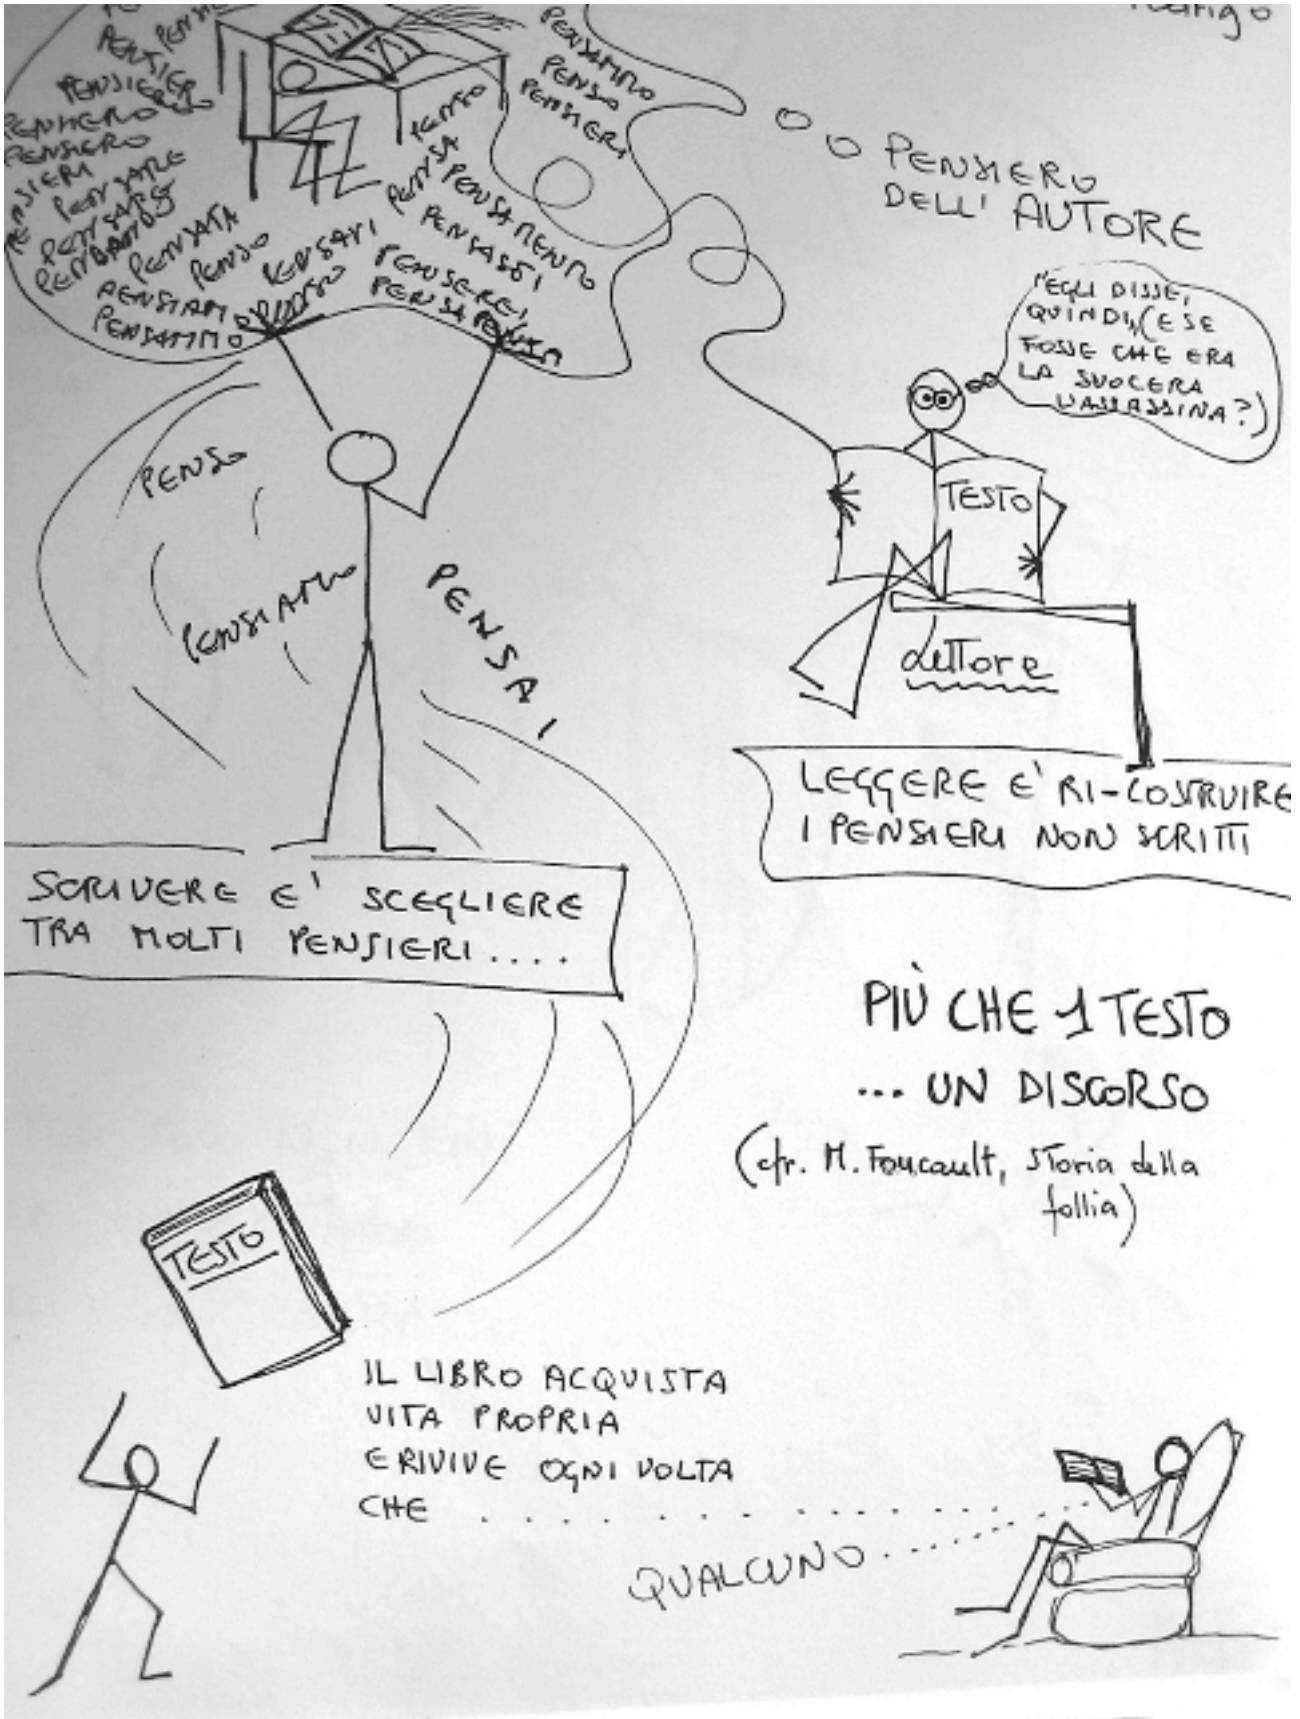 PENSIERO
PENSIERO
PENSIERO
PENSIERI
PENSARE
PENSATA
PENSO
PENSAVI
PENSIAMO
PENSAMMO
PENSO
PENSO
PENSA
PENSAMENTO
PENSASSI
PENSEREI
PENSA PENSA
PENSAMMO
PENSO
PENSIERI
PENSIERO
DELL'AUTORE
"EGLI DISSE,
QUINDI, (E SE
FOSSE CHE ERA
LA SUOCERA
L'ASSASSINA?)
TESTO
Lettore
LEGGERE E' RI-COSTRUIRE
I PENSIERI NON SCRITTI
PENSO
PENSIAMO
PENSAI
SCRIVERE E' SCEGLIERE
TRA MOLTI PENSIERI....
PIÙ CHE 1 TESTO
... UN DISCORSO
(cfr. M. Foucault, Storia della
follia)
TESTO
IL LIBRO ACQUISTA
VITA PROPRIA
E RIVIVE OGNI VOLTA
CHE . . . . . . . . . . .
QUALCUNO . . . . . . .